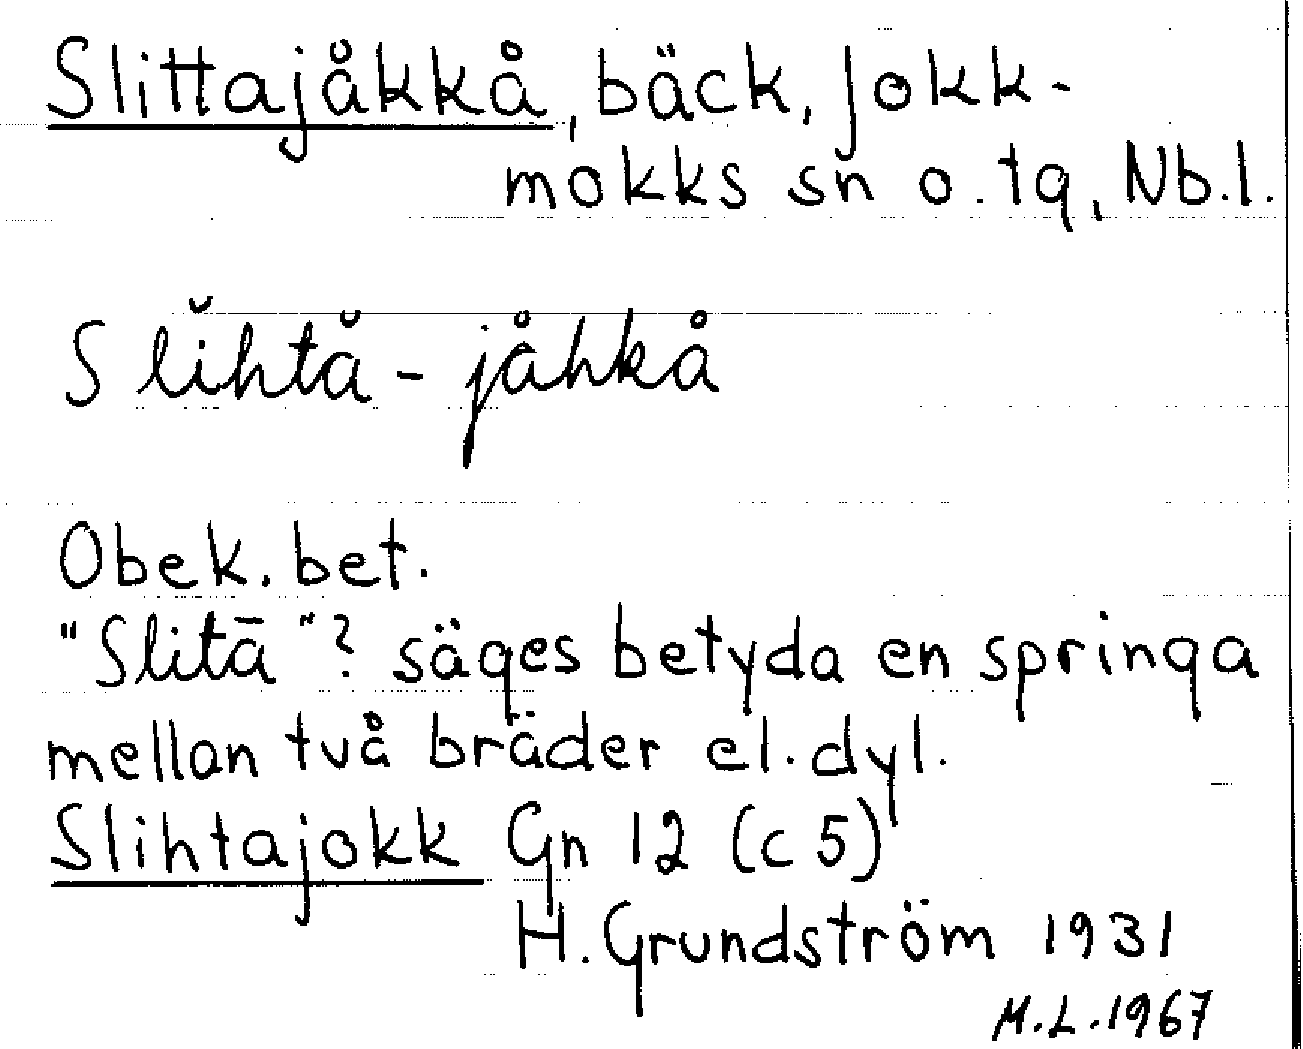 Slittajåkkå, bäck, Jokk-
mokks sn o. tg, Nb.l.
Slĭhtă-jåhkå
Obek. bet.
"Slitā"? säges betyda en springa
mellan två bräder el. dyl.
Slihtajokk Gn 12 (c 5)
H. Grundström 1931
M.L. 1967